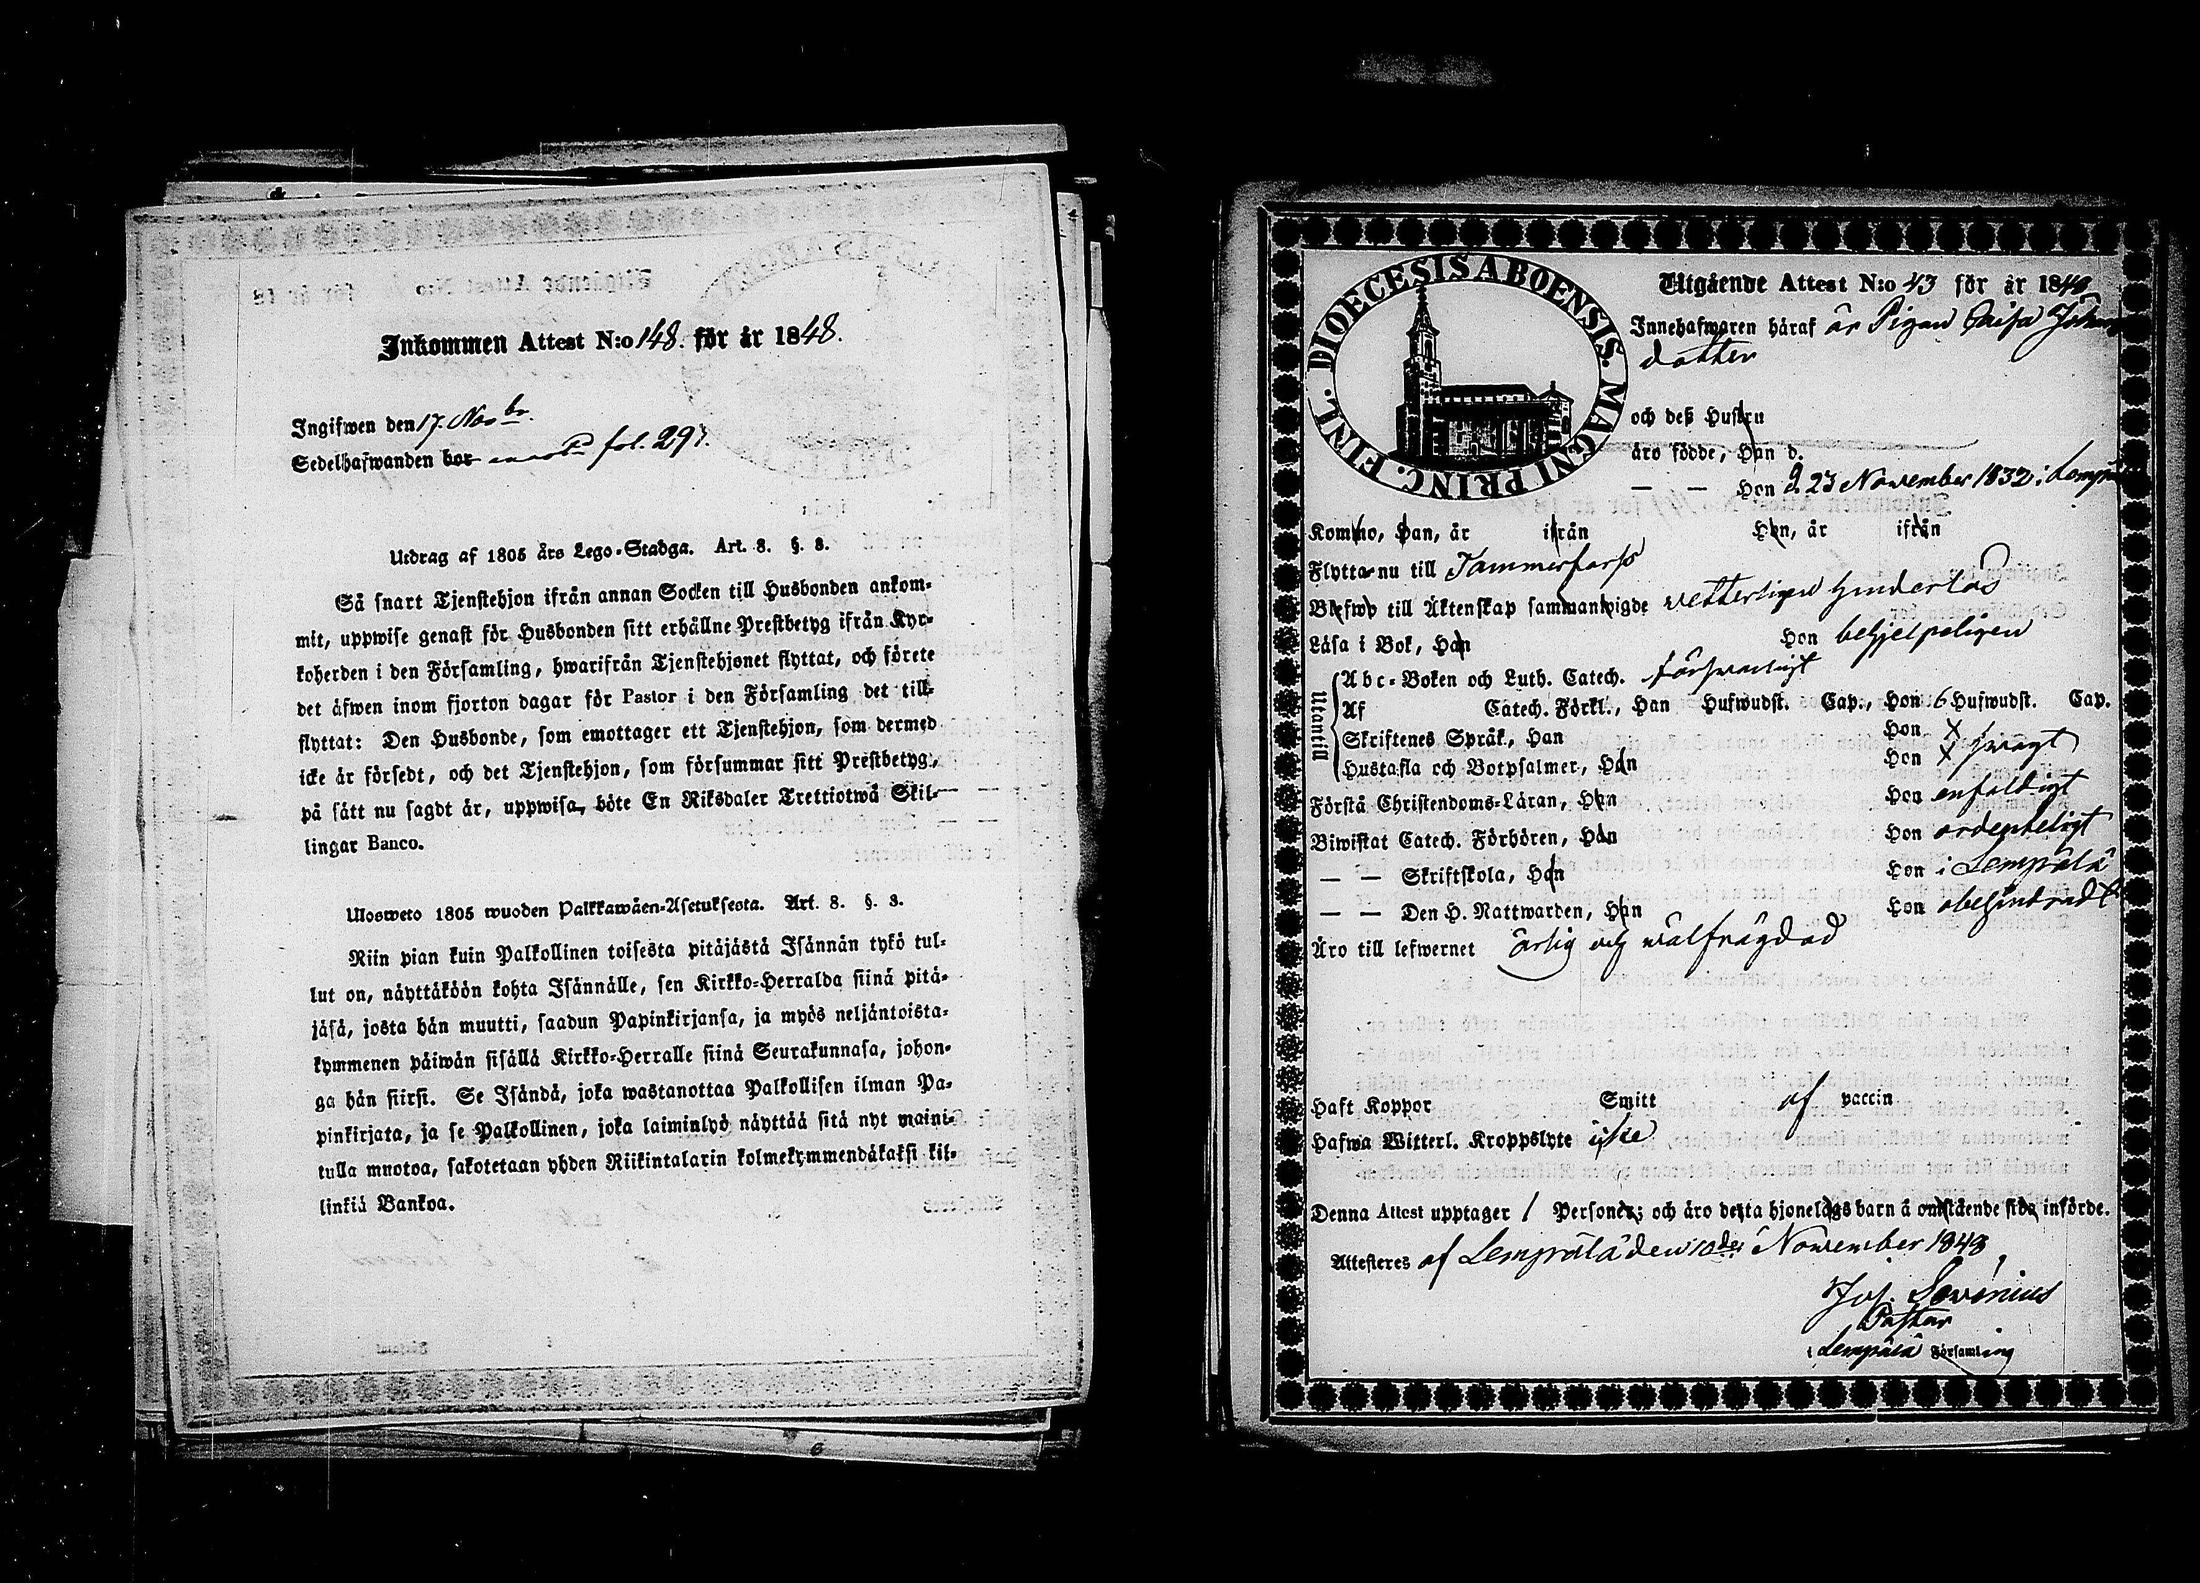 Inkommen Attest N:o 148. för år 1848.
Ingifwen den 17. Novbr.
Sedelhafwanden bor fol. 297.
Utdrag af 1805 års Lego-Stadga. Art. 8. §. 8.
Så snart Tjenstehjon ifrån annan Socken till Husbonden ankom-
mit, uppwise genast för Husbonden sitt erhållne Prestbetyg ifrån Kyr-
koherden i den Församling, hwarifrån Tjenstehjonet flyttat, och förete
det äfwen inom fjorton dagar för Pastor i den Församling det till-
flyttat: Den Husbonde, som emottager ett Tjenstehjon, som dermed
icke är försedt, och det Tjenstehjon, som försummar sitt Prestbetyg,
på sätt nu sagdt är, uppwisa, böte En Riksdaler Trettiotwå Skil-
lingar Banco.
Ulosweto 1805 wuoden Palkkawäen-Asetuksesta. Art. 8. §. 8.
Niin pian kuin Palkollinen toisesta pitäjästä Isännän tykö tul-
lut on, näyttäköön kohta Isännälle, sen Kirkko-Herralda siinä pitä-
jäsä, josta hän muutti, saadun Papinkirjansa, ja myös neljäntoista-
kymmenen päiwän sisällä Kirkko-Herralle siinä Seurakunnasa, johon-
ga hän siirsi. Se Isändä, joka wastanottaa Palkollisen ilman Pa-
pinkirjata, ja se Palkollinen, joka laiminlyö näyttää sitä nyt maini-
tulla muotoa, sakotetaan yhden Riikintalarin kolmekymmendäkaksi kil-
linkiä Bankoa.
DIOECESIS ABOENSIS. MAGNI PRINC. FINL.
Utgående Attest N:o 43 för år 1848
Innehafwaren häraf är Pigan Caisa Johans
dotter
och deß Hustru
äro födde, Han d.
— — Hon d. 23 November 1832 i Lempälä
Kommo, Han, år ifrån Hon, år ifrån
Flytta nu till Tammerfors
Blefwo till Äktenskap sammanwigde vetterligen hinderlös
Läsa i Bok, Han Hon behjelpeligen
Utantill
Abc-Boken och Luth. Catech. försvarligt
Af Catech. Förkl., Han Hufwudst. Cap., Hon 6 Hufwudst. Cap.
Skriftenes Språk, Han Hon X
Hustafla och Botpsalmer, Han Hon X svagt
Förstå Christendoms-Läran, Han Hon enfaldigt
Biwistat Catech. Förhören, Han Hon ordenteligt
— — Skriftskola, Han Hon i Lempälä
— — Den H. Nattwarden, Han Hon obehindrad
Äro till lefwernet ärlig och wälfrägdad
Haft Koppor Smitt af vaccin
Hafwa Witterl. Kroppslyte icke
Denna Attest upptager 1 Personer; och äro detta hjonelags barn å omstående sida införde.
Attesteres af Lempälä den 10de November 1848
Joh. Sevonius
Pastor
i Lempälä Församling